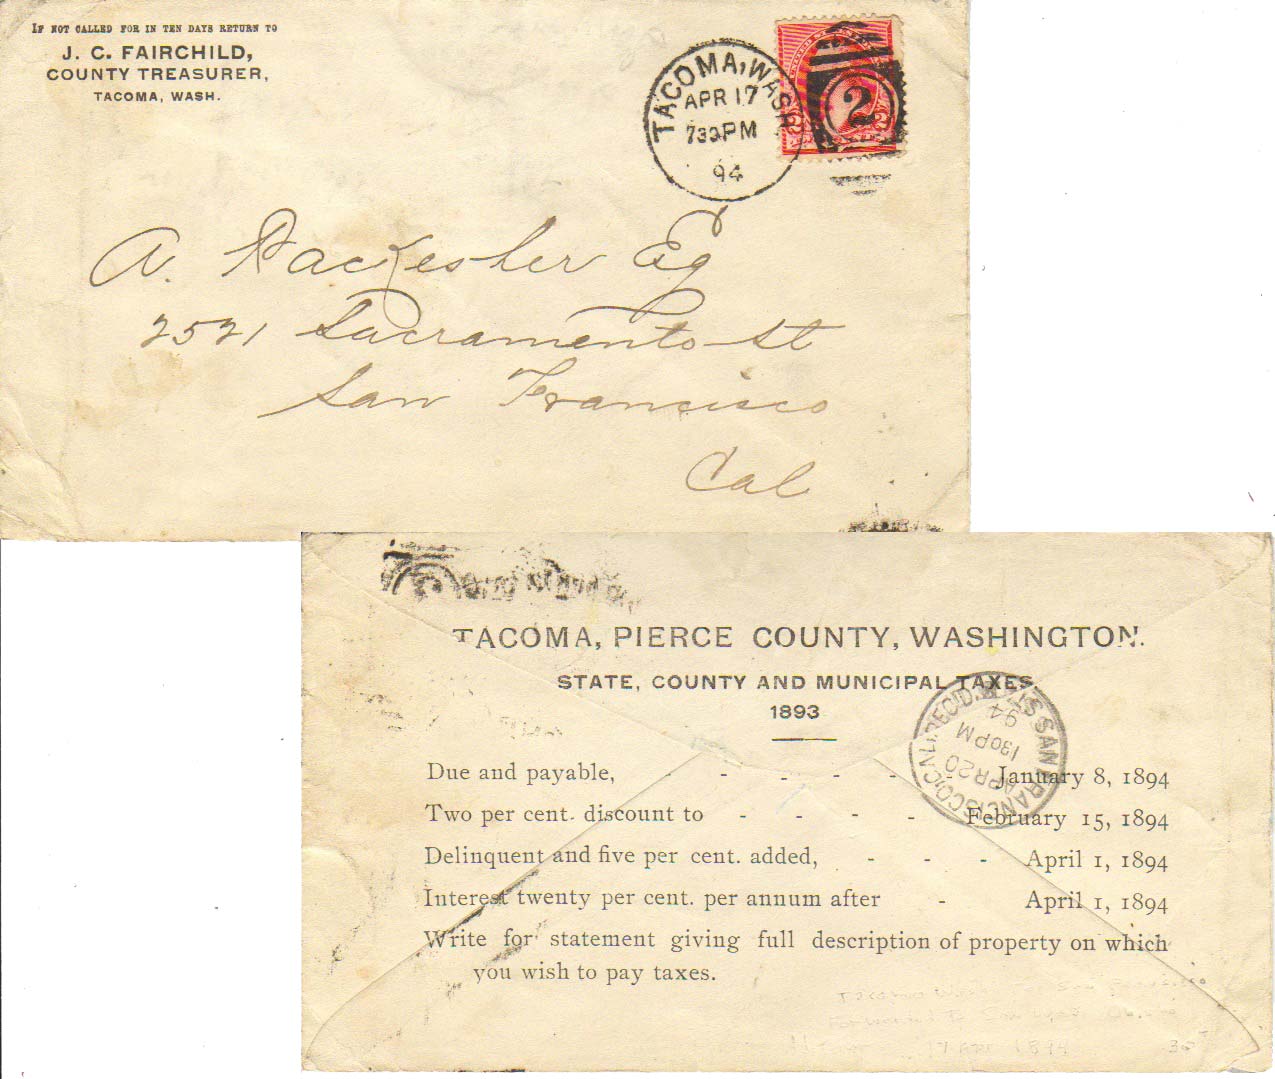 IF NOT CALLED FOR IN TEN DAYS RETURN TO
J. C. FAIRCHILD,
COUNTY TREASURER,
TACOMA, WASH.
TACOMA, WASH
APR 17
730PM
94
2
A. Esq
2521 Sacramento St
San Francisco
Cal
TACOMA, PIERCE COUNTY, WASHINGTON.
STATE, COUNTY AND MUNICIPAL TAXES
1893
Due and payable, - - - - - January 8, 1894
Two per cent. discount to - - - - February 15, 1894
Delinquent and five per cent. added, - - - April 1, 1894
Interest twenty per cent. per annum after - April 1, 1894
Write for statement giving full description of property on which
you wish to pay taxes.
SAN FRANCISCO, CAL. REC'D.
APR 20
130PM
94
Tacoma Wash to San Francisco
Forwarded to San
17 Apr 1894